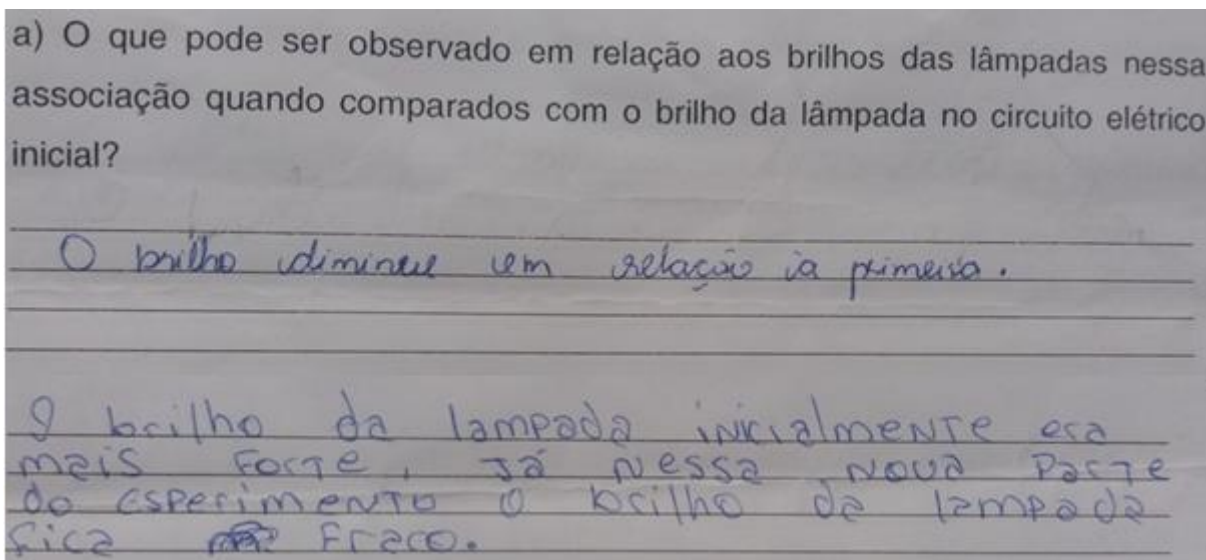 a) O que pode ser observado em relação aos brilhos das lâmpadas nessa
associação quando comparados com o brilho da lâmpada no circuito elétrico
inicial?
O brilho diminui em relação a primeira.
O brilho da lampada inicialmente era
mais forte, Já nessa nova Parte
do esperimento o brilho da lampada
fica fraco.